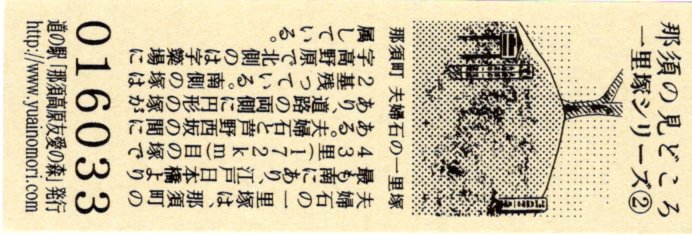 那須の見どころ
一里塚シリーズ②
那須町 夫婦石の一里塚
夫婦石の一里塚は、那須町の
最も南にあり、江戸日本橋より
43里(172km)目の塚で
ある。夫婦石と芦野西坂の間に
あり、道路の両側に円形の塚が
2基残っている。南側の塚は
字高野原で北側のは字築場に
属している。
016033
道の駅「那須高原友愛の森」発行
http://www.yuainomori.com